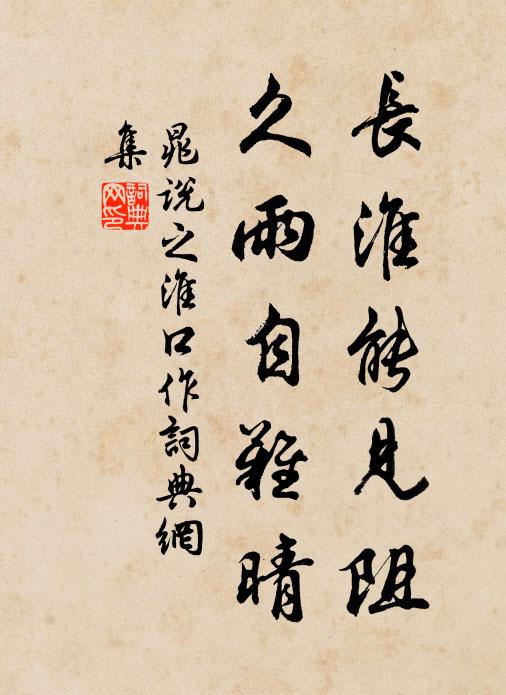 長淮能見阻
久雨自難晴
晁說之淮口作詞典網
集
詞典
网印